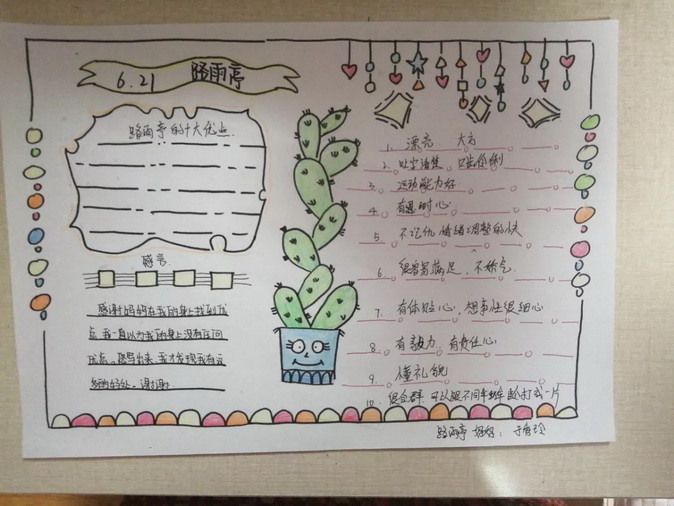 6.21 路雨亭
路雨亭的十大优点
感言
感谢妈妈在我的身上找到优
点,我一直以为我的身上没有任何
优点。您写出来,我才发现我有这
多的好处。谢谢
1. 漂亮. 大方
2. 吐字清楚 口齿伶俐
3. 运动能力好
4. 有恒心
5. 不记仇 情绪调整的快
6. 很容易满足,不娇气.
7. 有体贴心,想事情很细心
8. 有毅力 有责任心
9. 懂礼貌
10. 很合群,可以跟不同年龄打成一片
路雨亭 妈妈:于